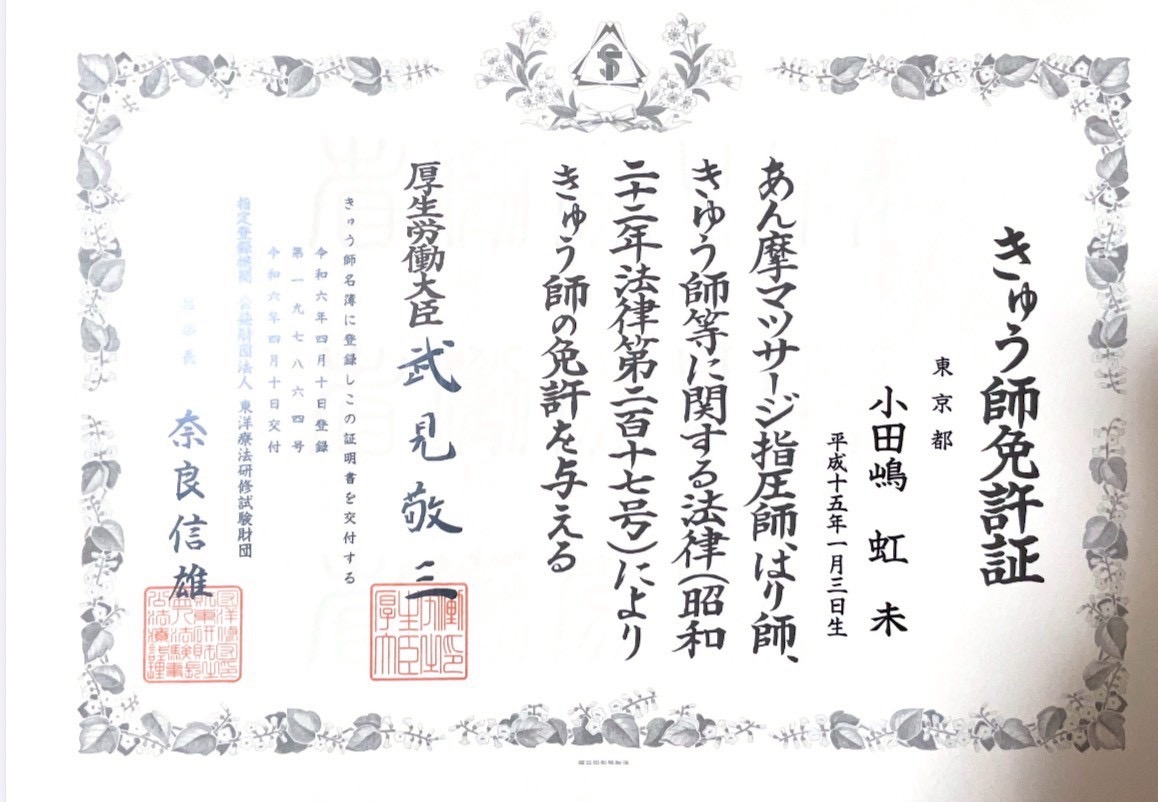 きゅう師免許証
東京都
小田嶋 虹未
平成十五年一月三日生
あん摩マツサージ指圧師、はり師、
きゆう師等に関する法律（昭和
二十二年法律第二百十七号）により
きゅう師の免許を与える
厚生労働大臣 武見敬三
きゅう師名簿に登録しこの証明書を交付する
令和六年四月十日登録
第一九七八六四号
令和六年四月十日交付
指定登録機関 公益財団法人 東洋療法研修試験財団
理事長 奈良信雄